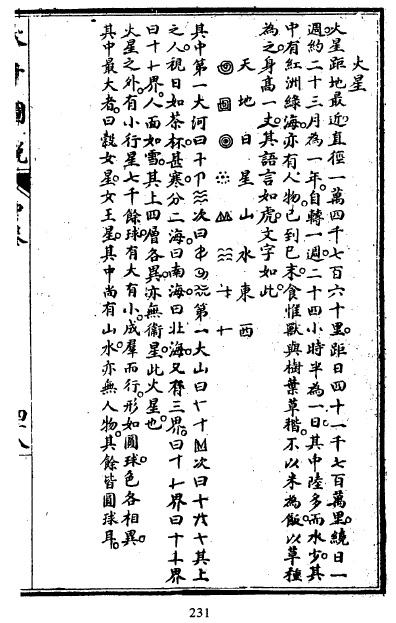 火星
火星距地最近直徑一萬四千七百六十里距日四十一千七百萬里繞日一
週約二十三月為一年自轉一週二十四小時半為一日其中陸多而水少其
中有紅洲綠海亦有人物已到巳末食惟獸與樹葉草稭不以米為飯以草種
為之身高一丈其語言如虎文字如此
天 地 日 星 山 水 東 西
其中第一大河曰 次曰 第一大山曰 次曰 其上
之人視日如茶杯甚寒分二海曰南海曰北海又有三界曰 界曰 界
曰 界人面如雪其上四層各異亦無衞星此火星也
火星之外有小行星七千餘球有大有小成羣而行形如圓球色各相異
其中最大者曰穀女星女王星其中尚有山水亦無人物其餘皆圓球耳
圖說
四八
231